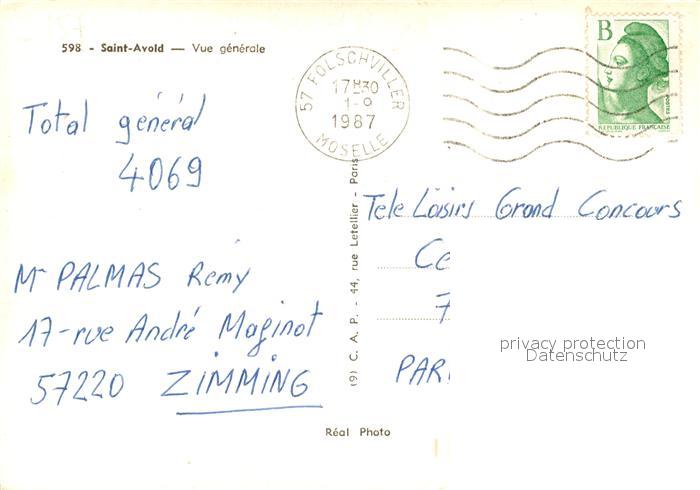 598 - Saint-Avold — Vue générale
57 FOLSCHVILLER
17H30
1-9
1987
MOSELLE
B
POSTES
REPUBLIQUE FRANÇAISE
Total général
4069
Tele Loisirs Grand Concours
Ce
7
PAR
Mr PALMAS Remy
17-rue André Maginot
57220 ZIMMING
(9) C. A. P. - 44, rue Letellier - Paris
Réal Photo
privacy protection
Datenschutz